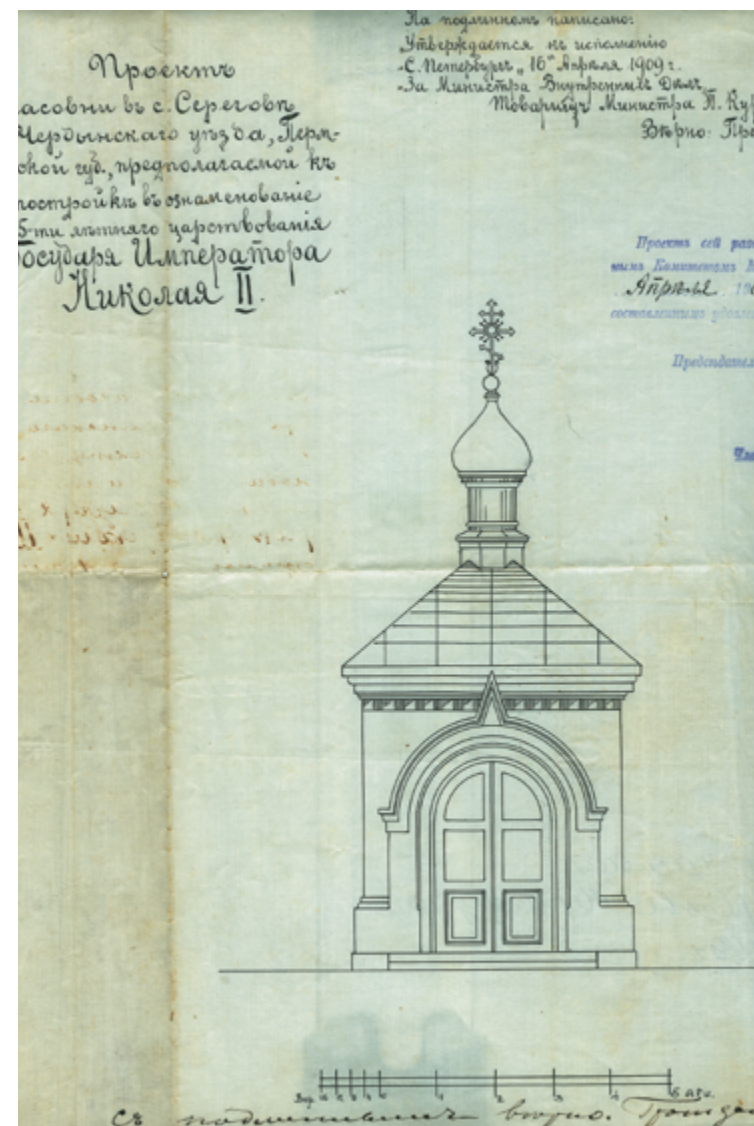 Проектъ
асовни въ с. Сереговѣ
Чердынскаго уѣзда, Перм-
ской губ., предполагаемой къ
постройкѣ въ ознаменованіе
5-ти лѣтняго царствованія
Государя Императора
Николая II.
На подлинномъ написано:
Утверждается къ исполненію
С. Петербургъ „16" Апрѣля 1909 г.
За Министра Внутреннихъ Дѣлъ,
Товарищъ Министра П. Кур
Вѣрно: Пр
Проектъ сей раз
нымъ Комитетомъ М
Апрѣля 190
составленнымъ удовл
Предсѣдател
Чле
Вер 1 2 3 4 5 арх.
Съ подлиннымъ вѣрно. Гражда